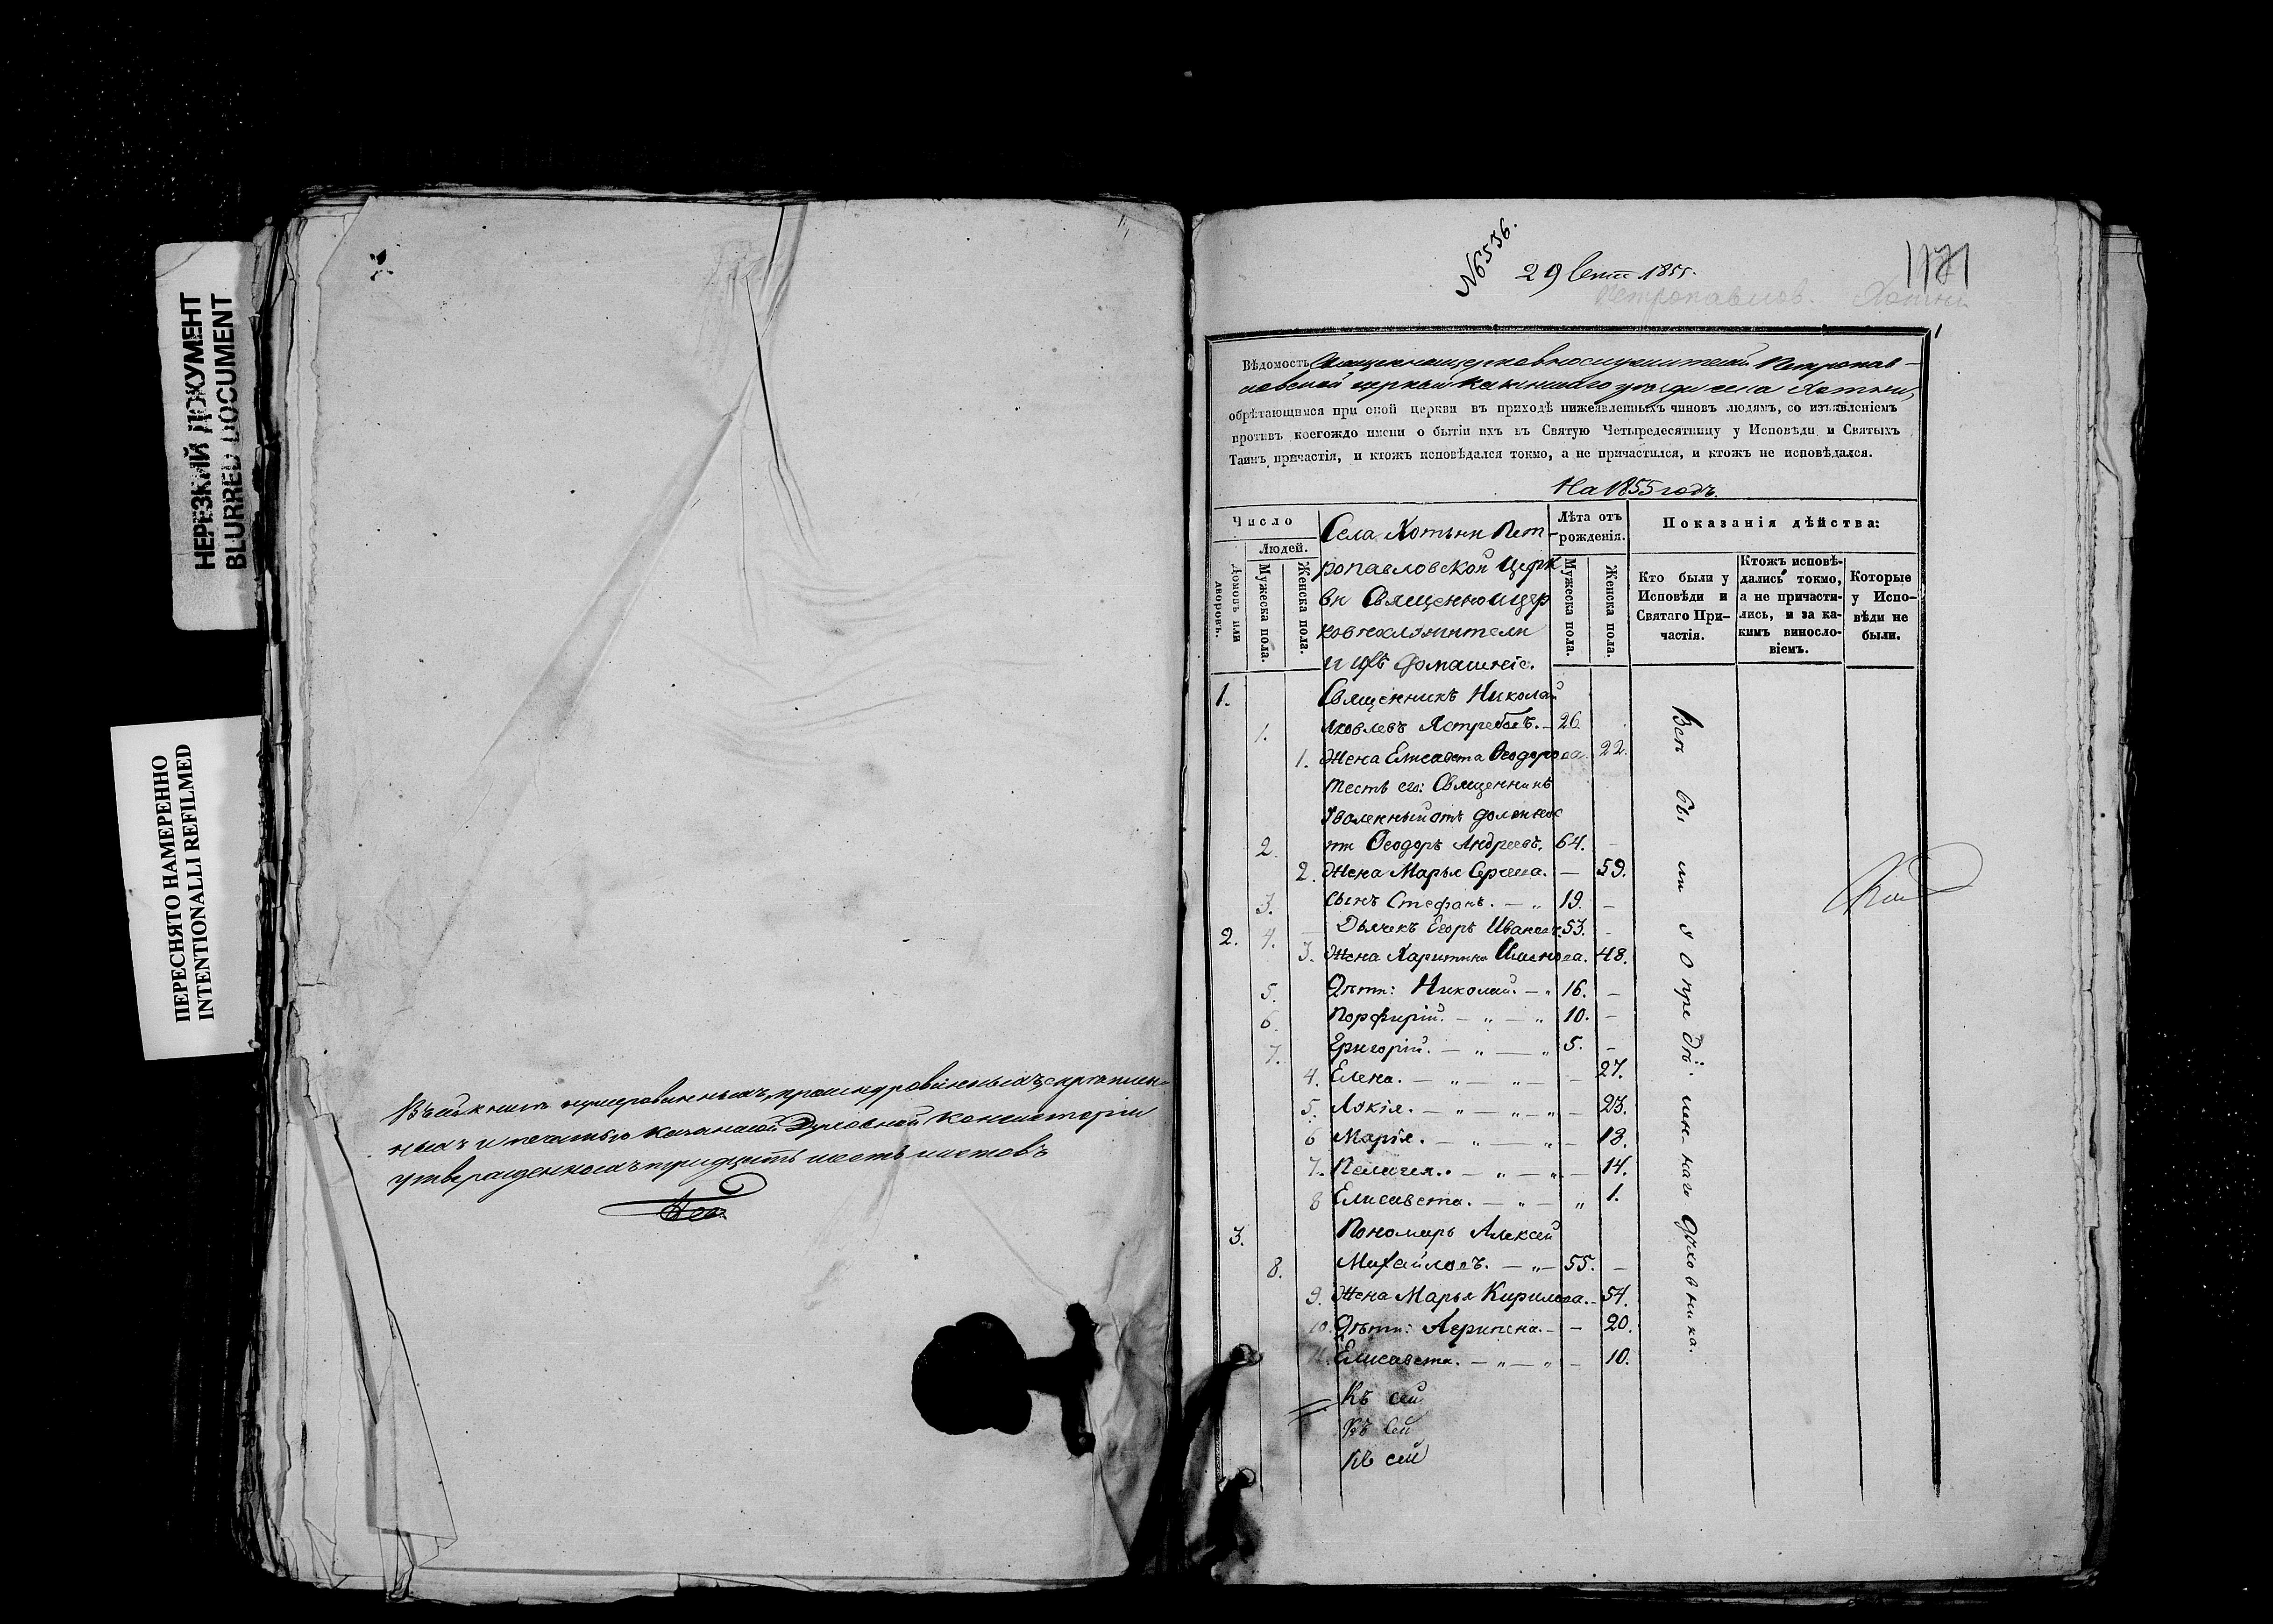 НЕРЕЗКИЙ ДОКУМЕНТ
BLURRED DOCUMENT
ПЕРЕСНЯТО НАМЕРЕННО
INTENTIONALLI REFILMED
Въ сей книгѣ нумерованныхъ, прошнурованныхъ, скрѣплен-
ныхъ и печатью Духовной Консисторіи
утвержденныхъ тридцать шесть листовъ
№6536.
29 Сент 1855.
Петропавлов. Хотни
Вѣдомость Священноцерковнослужителей Петропав-
ловской церкви уѣзда села Хотни,
обрѣтающимся при оной церкви въ приходѣ нижеявленныхъ чиновъ людямъ, со изъявленіемъ
противъ коегождо имени о бытіи ихъ въ Святую Четыредесятницу у Исповѣди и Святыхъ
Таинъ причастія, и ктожъ исповѣдался токмо, а не причастился, и ктожъ не исповѣдался.
На 1855 годъ.
Число
Людей.
Домовъ или дворовъ.
Мужеска пола.
Женска пола.
Села Хотьни Пет-
ропавловской Церк
ви Священноцер
ковнослужители
и ихъ домашніе.
Лѣта отъ рожденія.
Мужеска пола.
Женска пола.
Показанія дѣйства:
Кто были у Исповѣди и Святаго При-частія.
Ктожъ исповѣ-дались токмо, а не причасти-лись, и за ка-кимъ винослo-віемъ.
Которые у Испо-вѣди не были.
1. Священникъ Николай
1. Яковлевъ Ястребовъ. — 26.
1. Жена Елисавета Ѳеодорова. 22.
Тесть его: Священникъ
Уволенный отъ должнос
2. ти Ѳеодоръ Андреевъ. 64. —
2. Жена Марья Сергеева. — 59.
3. Сынъ Стефанъ. — „ 19. —
2. 4. Дьячекъ Егоръ Ивановъ. 53. —
3. Жена Харитина. 48.
5. Дѣти: Николай. — „ 16. —
6. Порфирій. — „ — „ 10. —
7. Григорій. — „ — „ 5. —
4. Елена. — „ — „ — — 27.
5. Лукія. — „ — „ — „ — 23.
6 Марія. — „ — „ — 18.
7. Пелагея. — „ — „ — 14.
8 Елисавета. — „ — „ 1.
3. Пономарь Алексѣй
8. Михайловъ. — „ — 55. —
9. Жена Марья Кирилова. — 54.
10. Дѣти: Агрипена. — — 20.
11. Елисавета. — „ — „ — 10.
Всѣ бы ли у О пре дѣ лен наго духовника.
Къ сей
Къ сей
Къ сей